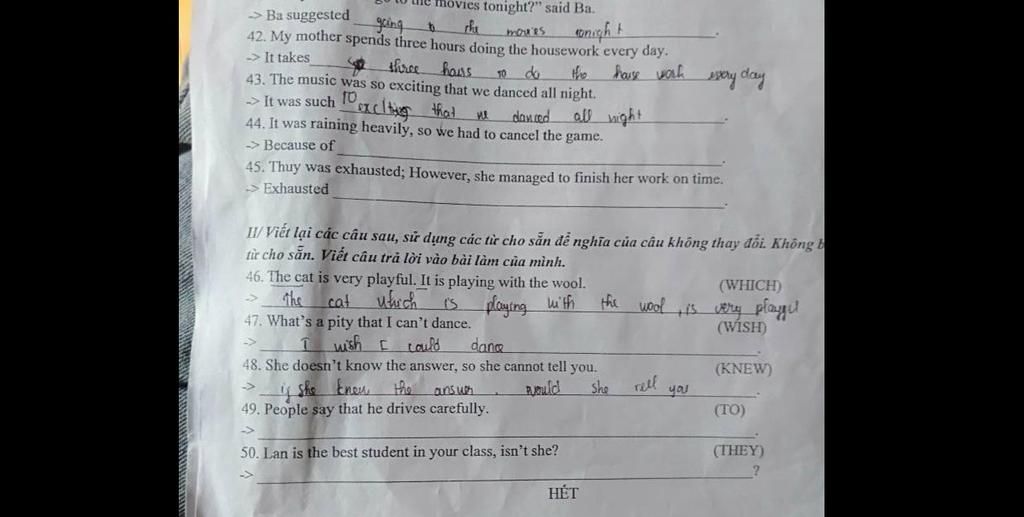 go to the movies tonight?" said Ba.
-> Ba suggested going to the movies tonight.
42. My mother spends three hours doing the housework every day.
-> It takes three hours to do the house work every day
43. The music was so exciting that we danced all night.
-> It was such exciting that we danced all night.
44. It was raining heavily, so we had to cancel the game.
-> Because of ___.
45. Thuy was exhausted; However, she managed to finish her work on time.
-> Exhausted ___.
II/ Viết lại các câu sau, sử dụng các từ cho sẵn để nghĩa của câu không thay đổi. Không
từ cho sẵn. Viết câu trả lời vào bài làm của mình.
46. The cat is very playful. It is playing with the wool. (WHICH)
-> The cat which is playing with the wool, is very
47. What's a pity that I can't dance. (WISH)
-> I wish I could dance.
48. She doesn't know the answer, so she cannot tell you. (KNEW)
-> if she knew the answer, would she tell you.
49. People say that he drives carefully. (TO)
-> ___.
50. Lan is the best student in your class, isn't she? (THEY)
-> ___?
HẾT